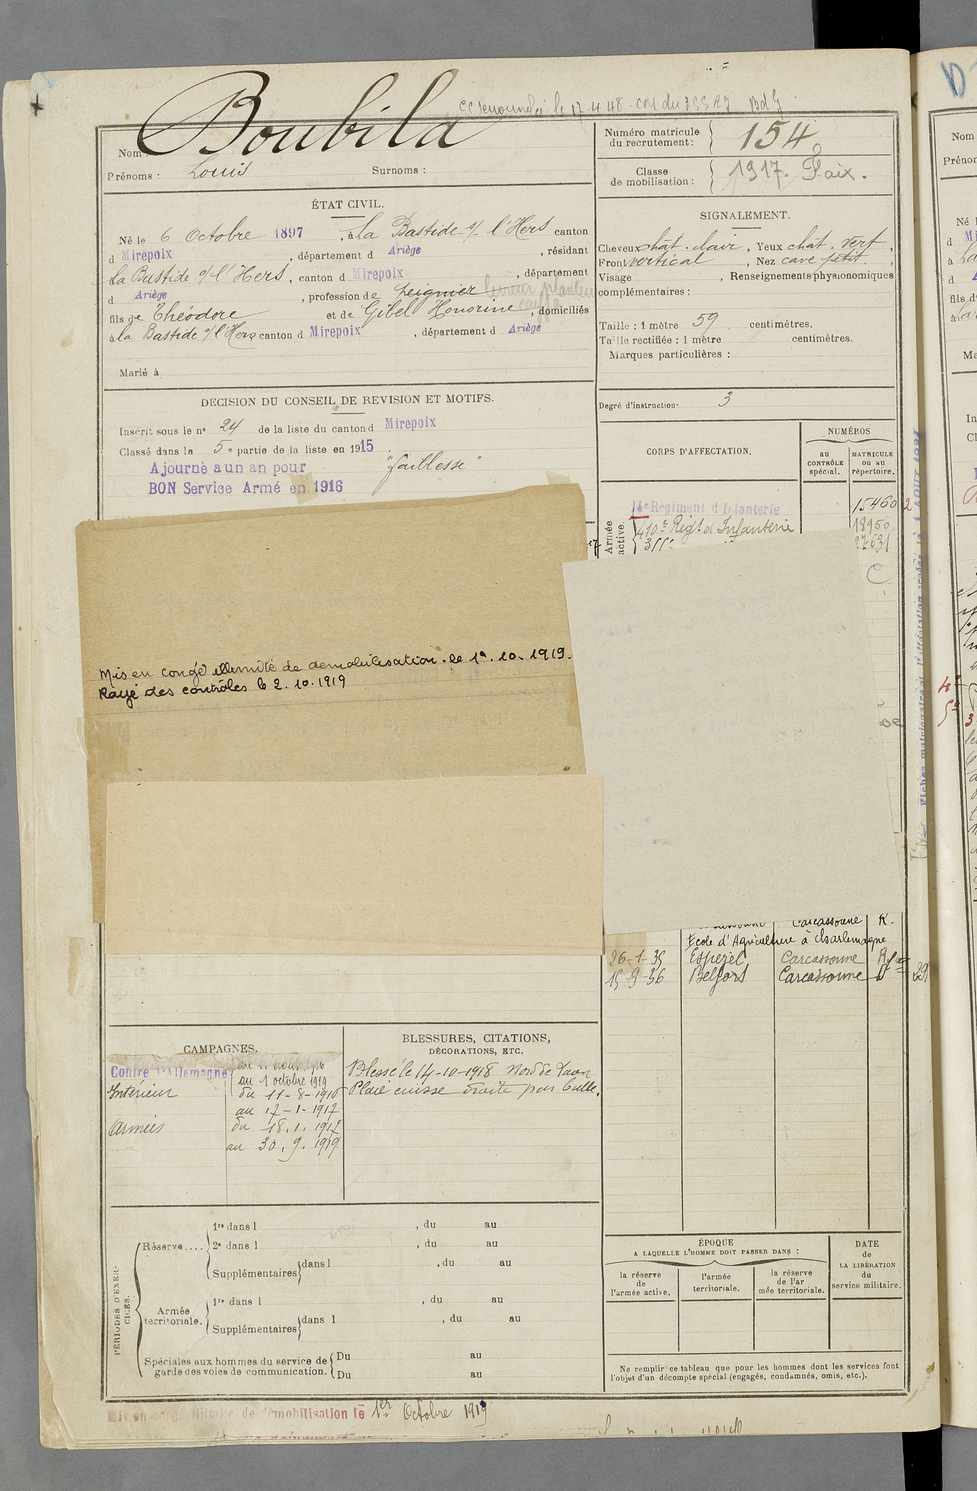 le 17 4 48
Boubila
Nom :
Prénoms : Louis Surnoms :
Numéro matricule
du recrutement : 154
Classe
de mobilisation : 1917. Paix.
ÉTAT CIVIL.
Né le 6 Octobre 1897, à La Bastide s/ l'Hers canton
d Mirepoix, département d Ariège, résidant
à La Bastide s/ l'Hers, canton d Mirepoix, département
d Ariège, profession de peignier
fils de Théodore et de Gibel Honorine, domiciliés
à La Bastide s/ l'Hers canton d Mirepoix, département d Ariège
Marié à
SIGNALEMENT.
Cheveux chat. clair, Yeux chat. vert,
Front vertical, Nez cave petit,
Visage , Renseignements physionomiques
complémentaires :
Taille : 1 mètre 59 centimètres.
Taille rectifiée : 1 mètre centimètres.
Marques particulières :
Degré d'instruction : 3
DECISION DU CONSEIL DE REVISION ET MOTIFS.
Inscrit sous le n° 24 de la liste du canton d Mirepoix
Classé dans la 5e partie de la liste en 1915
Ajourné a un an pour "faiblesse"
BON Service Armé en 1916
CORPS D'AFFECTATION.
NUMÉROS
au
CONTRÔLE
spécial.
MATRICULE
OU AU
répertoire.
Armée
active.
14e Régiment d'Infanterie 15460
410e Régt d'Infanterie 18950
27631
Mis en congé illimité de démobilisation. le 1er. 10. 1919.
Rayé des contrôles le 2. 10. 1919
Carcassonne R.
Ecole d'Agriculture à Charlemagne
26-1-35 Espezel Carcassonne R
15-9-36 Belfort Carcassonne D
CAMPAGNES.
Contre l'Allemagne
au 1 octobre 1919
Intérieur du 11-8-1916
au 17-1-1917
Armées du 18.1.1917
au 30.9.1919
BLESSURES, CITATIONS,
DÉCORATIONS, ETC.
Blessé le 14-10-1918 Nord de Laon
Plaie cuisse droite par balle.
PÉRIODES D'EXER-
CICES.
Réserve....
1re dans l , du au
2e dans l , du au
Supplémentaires dans l , du au
Armée
territoriale.
1re dans l , du au
Supplémentaires dans l , du au
Spéciales aux hommes du service de
garde des voies de communication.
Du au
Du au
ÉPOQUE
A LAQUELLE L'HOMME DOIT PASSER DANS :
la réserve
de
l'armée active.
l'armée
territoriale.
la réserve
de l'ar
mée territoriale.
DATE
de
LA LIBÉRATION
du
service militaire.
Ne remplir ce tableau que pour les hommes dont les services font
l'objet d'un décompte spécial (engagés, condamnés, omis, etc.).
Mis en congé illimité de démobilisation le 1er Octobre 1919